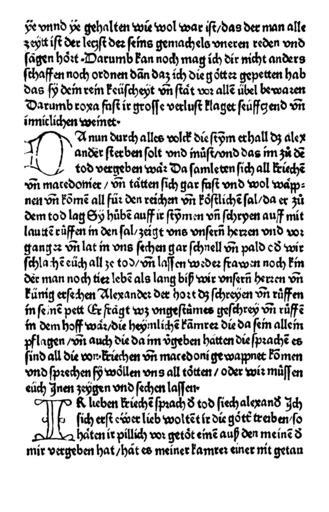 ye vnnd ye gehalten wie wol war ist/das der man alle
zeytt ist der letzst der seins gemachels vneren reden vnd
sagen hört. Darumb kan noch mag ich dir nicht anders
schaffen noch ordnen dan̄ daz ich die götter gepetten hab
das sy dein rein keüscheyt vn̄ stät vor allē übel bewaren
Darumb roxa fast ir grosse verlust klaget seüffczend vn̄
inniclichen weinet.
DA nun durch alles volck die stym̄ erhall dz alex
ander sterben solt vnd müst/vnd das im zů dē
tod vergeben war Da samleten sich all kriechē
vn̄ macedonier/vn̄ tätten sich gar fast vnd wol wapp-
nen vn̄ komē all für den reichen vn̄ köstlichē sal/da er zů
dem tod lag Sy hůbē auff ir stymen vn̄ schryen auff mit
lautten rüffen in den sal/zeigt vns vnsern̄ herren vnd vor
ganger vn̄ lat in vns sechen gar schnell vn̄ pald oð wir
schlachē eüch all ze tod/vn̄ lassen weder frawen noch kin
der man noch tier lebē als lang biß wir vnsern̄ herren vn̄
künig ersechen Alexander der hort dz schreyen vn̄ rüffen
in seinē pett Er frägt wz vngestümes geschrey vn̄ rüffē
in dem hoff wär/die heymlichē kämrer die da sein allein
pflagen/vn̄ auch die da im vmgeben hätten die sprachē es
sind all die von kriechen vn̄ macedoni gewappnet komen
vnd sprechen sy wöllen vns all tötten/oder wir müssen
eüch Jnen zeygen vnd sechen lassen.
IR lieben kriechē sprach ð tod siech alexanð Jch
sich erst ewer lieb woltēt ir die göttᷣ treiben/so
häten ir pillich vor getöt einē auß den meinē ð
mir vergeben hat/hat es meiner kamrer einer mit getau